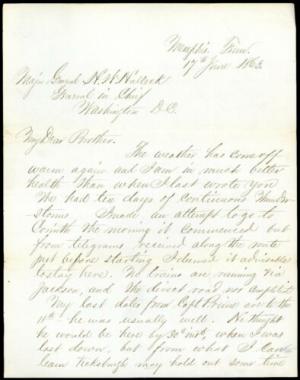 Memphis Tenn.
17th June 1863.
Major General H. W. Halleck
General in Chief
Washington D.C.
My Dear Brother.
The weather has come off
warm again and I am in much better
health than when I last wrote you
We had ten days of continuous Thunder
storms I made an attempt to go to
Corinth the morning it commenced but
from telegrams received along the route
just before starting I deemed it advisable
to stay here. The trains are running via
Jackson, and the direct road not completed
My last dates from Capt Prime are to the
11th he was usually well. He thought
he would be here by 30th inst, when I was
last down, but from what I can
learn Vicksburgh may hold out some time